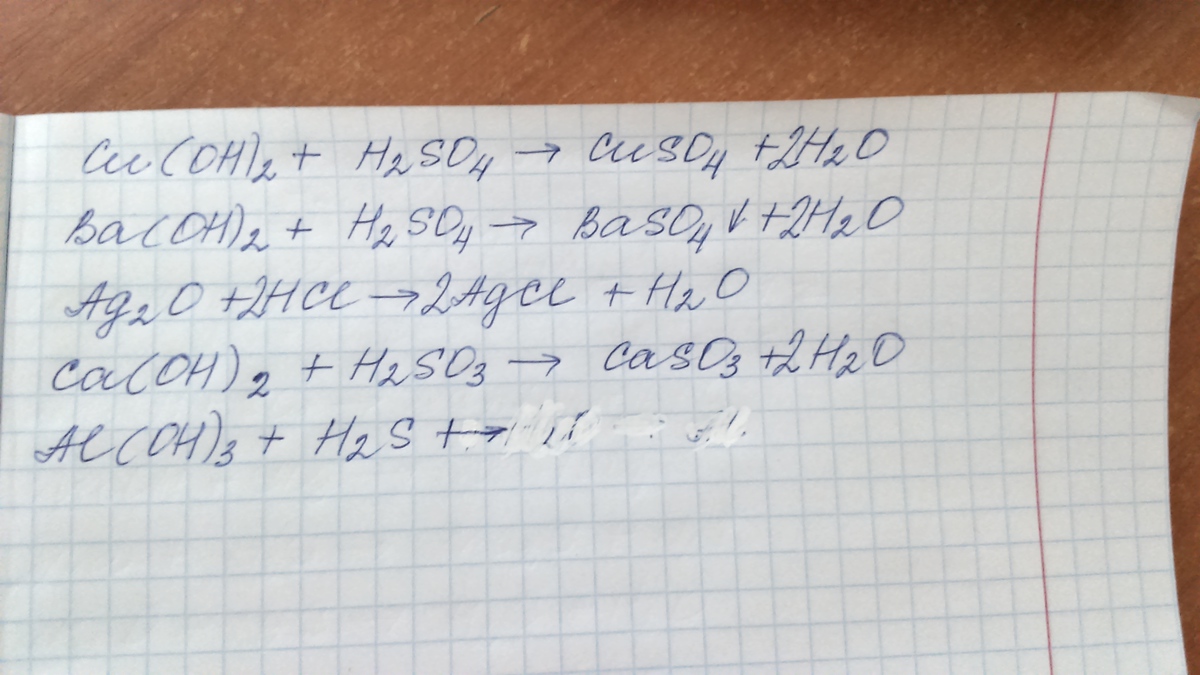 Cu(OH)₂ + H₂SO₄ → CuSO₄ +2H₂O
Ba(OH)₂ + H₂SO₄ → BaSO₄↓ +2H₂O
Ag₂O +2HCl →2AgCl + H₂O
Ca(OH)₂ + H₂SO₃ → CaSO₃ +2H₂O
Al(OH)₃ + H₂S + →